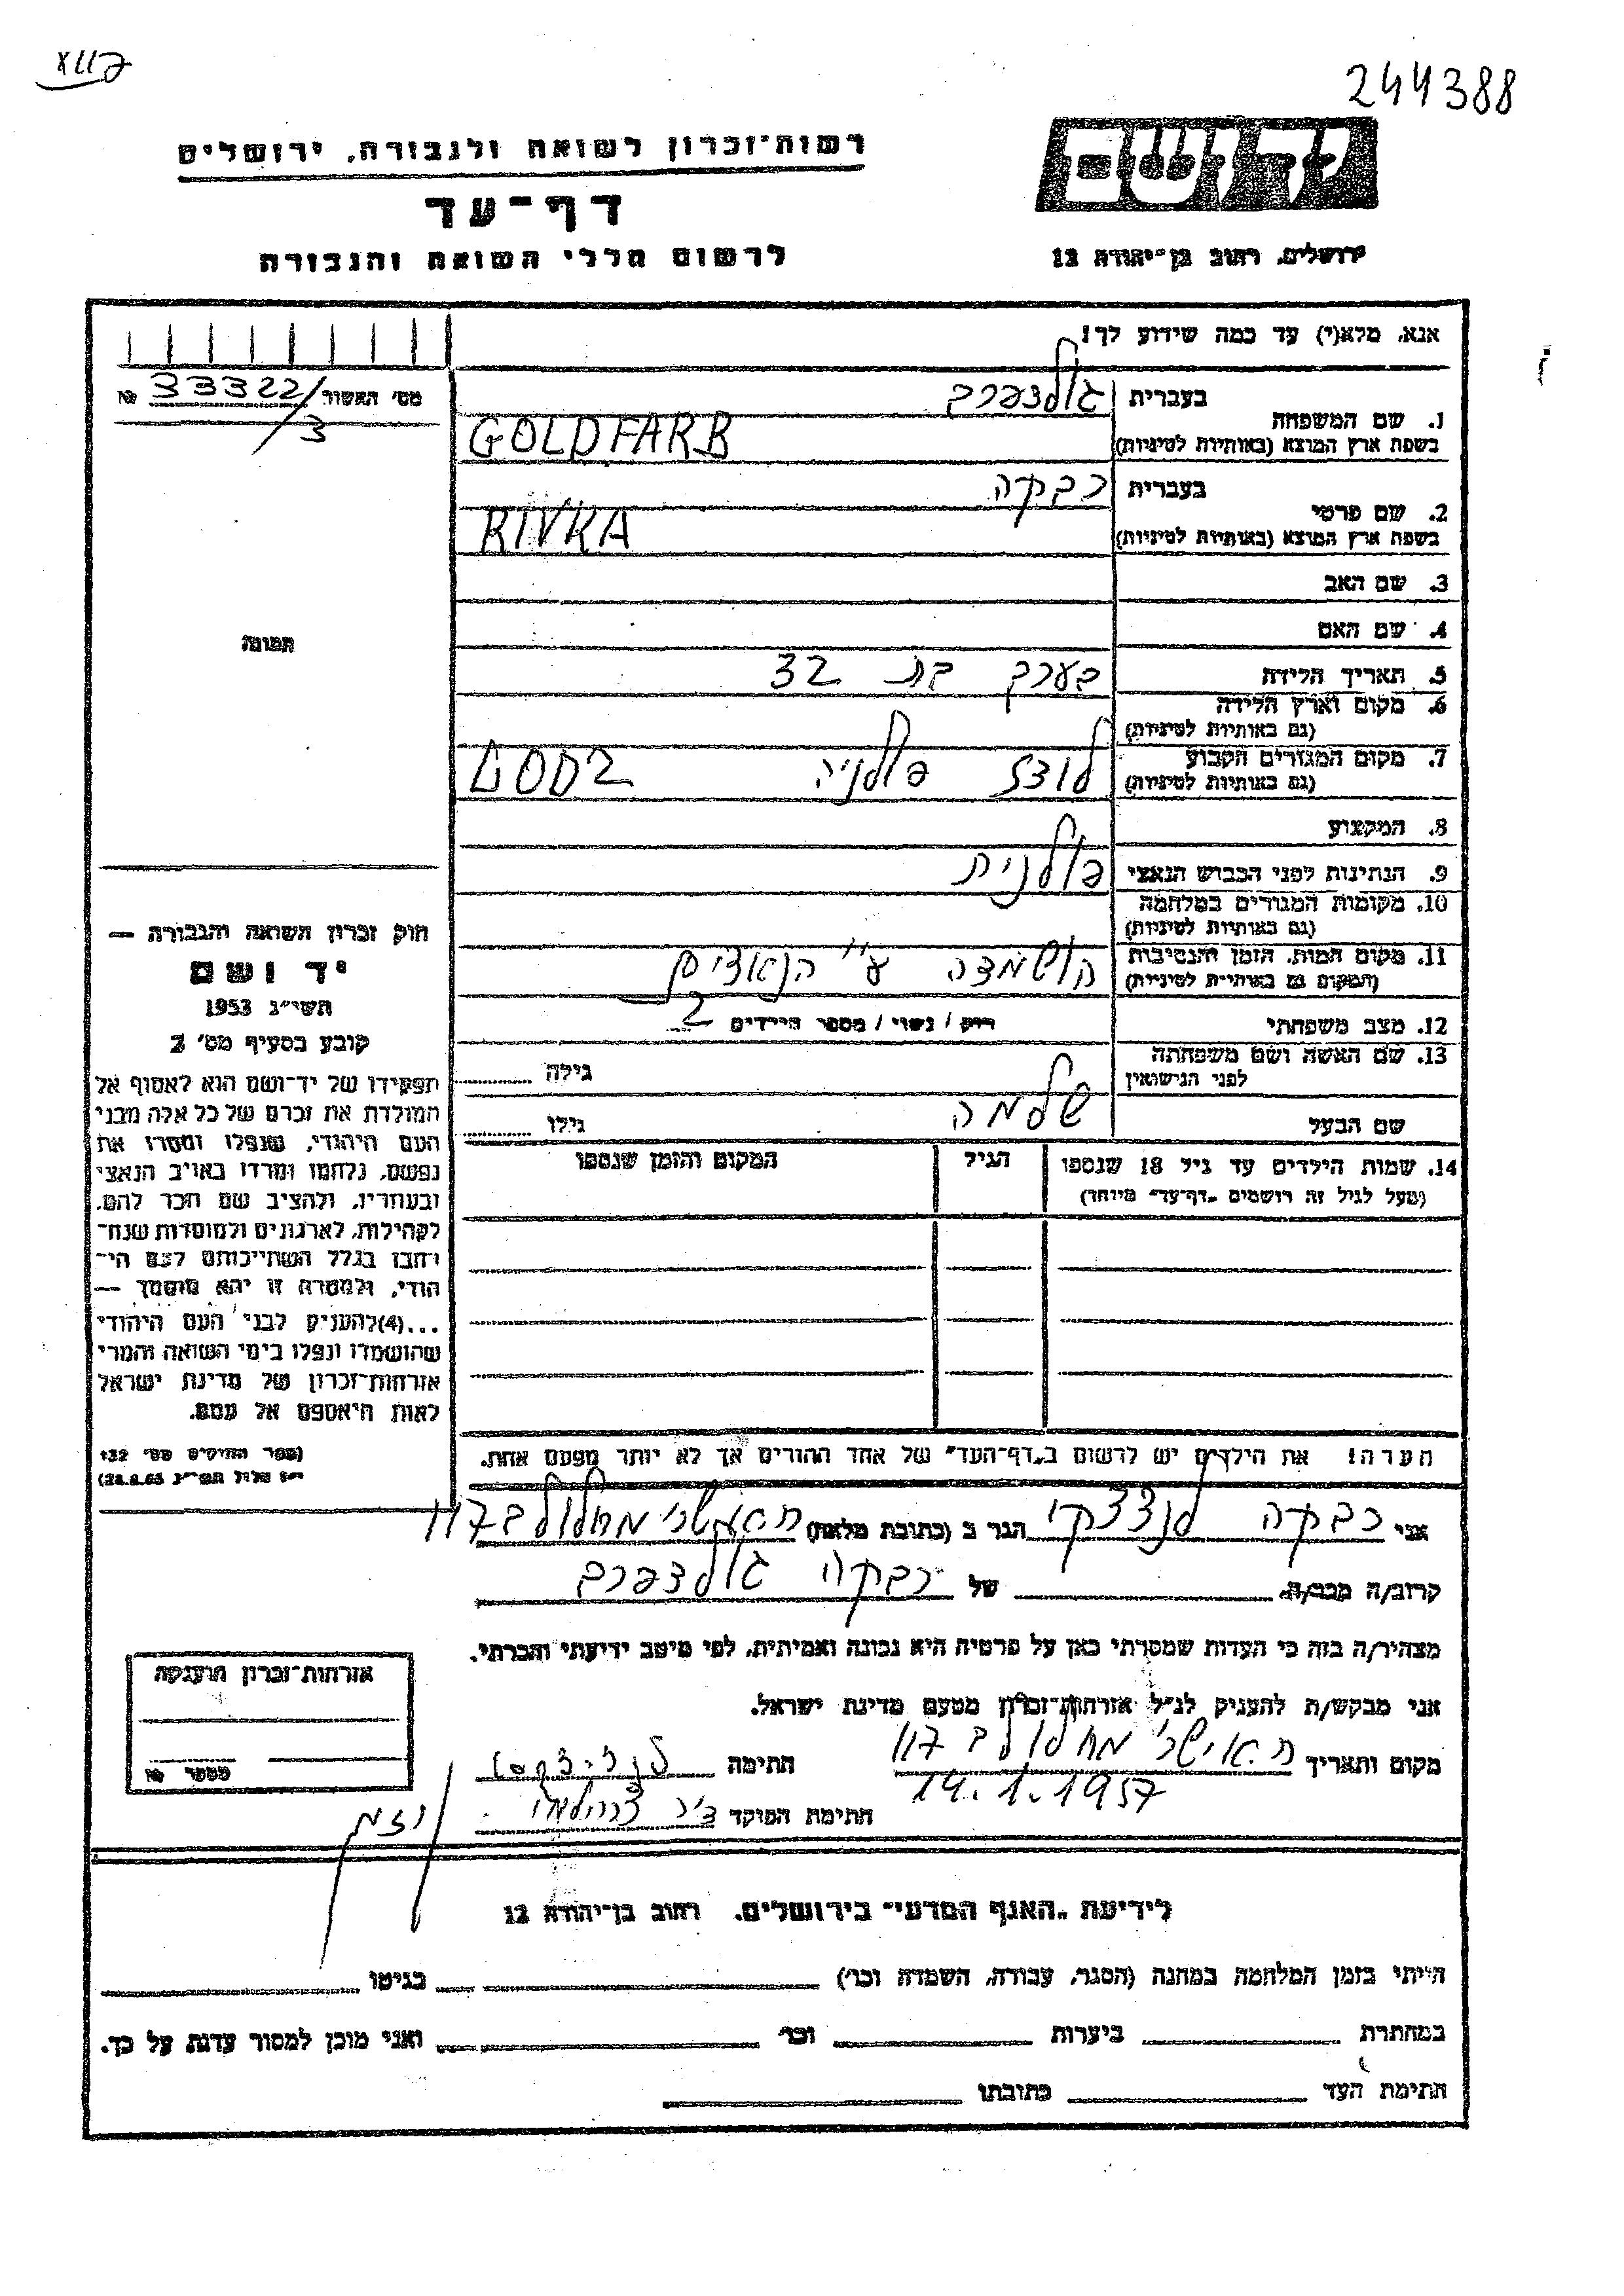 244388
יד ושם
ירושלים, רחוב בן־יהודה 12
רשות־זכרון לשואה ולגבורה, ירושלים
דף־עד
לרשום חללי השואה והגבורה
אנא, מלא(י) עד כמה שידוע לך!
1. שם המשפחה
בעברית גולדפרב
בשפת ארץ המוצא (באותיות לטיניות) GOLDFARB
2. שם פרטי
בעברית רבקה
בשפת ארץ המוצא (באותיות לטיניות) RIVKA
3. שם האב
4. שם האם
5. תאריך הלידה בערך בת 32
6. מקום וארץ הלידה
(גם באותיות לטיניות)
7. מקום המגורים הקבוע לודז פולניה LODZ
(גם באותיות לטיניות)
8. המקצוע
9. הנתינות לפני הכבוש הנאצי פולנית
10. מקומות המגורים במלחמה
(גם באותיות לטיניות)
11. מקום המות, הזמן והנסיבות הושמדה ע"י הנאצים
(המקום גם באותיות לטיניות)
12. מצב משפחתי רווק / נשוי / מספר הילדים 2
13. שם האשה ושם משפחתה
לפני הנישואין גילה
שם הבעל שלמה גילו
14. שמות הילדים עד גיל 18 שנספו הגיל המקום והזמן שנספו
(מעל לגיל זה רושמים "דף־עד" מיוחד)
הערה! את הילדים יש לרשום ב"דף־העד" של אחד ההורים אך לא יותר מפעם אחת.
מס' האשור 33322/3 №
תמונה
חוק זכרון השואה והגבורה —
יד ושם
תשי"ג 1953
קובע בסעיף מס' 2
תפקידו של יד־ושם הוא לאסוף אל
המולדת את זכרם של כל אלה מבני
העם היהודי, שנפלו ומסרו את
נפשם, נלחמו ומרדו באויב הנאצי
ובעוזריו, ולהציב שם וזכר להם,
לקהילות, לארגונים ולמוסדות שנח־
רבו בגלל השתייכותם לעם הי־
הודי, ולמטרה זו יהא מוסמך —
...(4)להעניק לבני העם היהודי
שהושמדו ונפלו בימי השואה והמרי
אזרחות־זכרון של מדינת ישראל
לאות היאספם אל עמם.
(ספר החוקים מס' 132
אני רבקה הגר ב (כתובת מלאה)
קרוב/ה מכר/ה של רבקה גולדפרב
מצהיר/ה בזה כי העדות שמסרתי כאן על פרטיה היא נכונה ואמיתית, לפי מיטב ידיעתי והכרתי.
אני מבקש/ת להעניק לנ"ל אזרחות־זכרון מטעם מדינת ישראל.
מקום ותאריך חתימה
14.1.1957
חתימת הפוקד
אזרחות־זכרון הוענקה
מספר №
לידיעת "האגף המדעי" בירושלים, רחוב בן־יהודה 12
הייתי בזמן המלחמה במחנה (הסגר, עבודה, השמדה וכו') בגיטו
במחתרת ביערות וכו' ואני מוכן למסור עדות על כך.
חתימת העד כתובתו